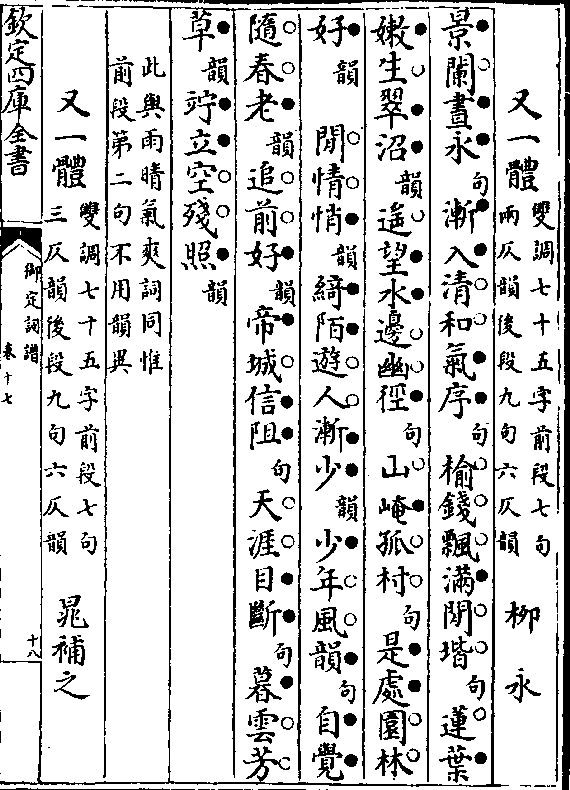 又一體 雙調七十五字前段七句兩仄韻後段九句六仄韻 栁永
景闌晝永句漸入清和氣序句榆錢飄滿閒堦句蓮葉
嫩生翠沼韻遙望水邊幽徑句山崦孤村句是處園林
好韻 閒情悄韻綺陌遊人漸少韻少年風韻句自覺
隨春老韻追前好韻帝城信阻句天涯目斷句暮雲芳
草韻竚立空殘照韻
此與雨晴氣爽詞同惟
前段第二句不用韻異
又一體 雙調七十五字前段七句三仄韻後段九句六仄韻 晁補之
欽定四庫全書
御定詞譜
卷十七
十八